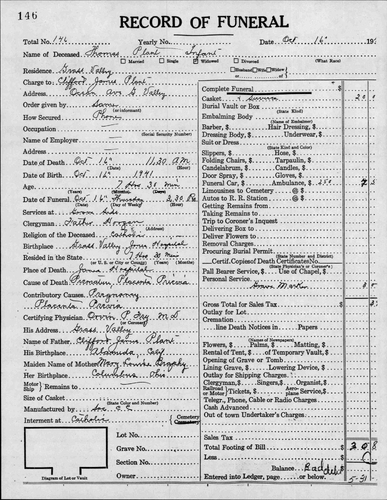 146
RECORD OF FUNERAL
Total No. 146 Yearly No. Date Oct 16 19
Name of Deceased Thomas Plant Infant
Married Single Widowed Divorced (What Race)
Residence Grass Valley Husband Wife Widow
Charge to Clifford James Plant
Address G. Valley
Order given by Same
How Secured Phone
Occupation
(Social Security Number)
Employer
Date of Death Oct 16 11.20 AM
Date of Birth Oct 16 1941
Age 7 Hrs 30 min
(Years) (Months) (Days)
Date of Funeral Oct 16 Thursday 2.30 PM
(Date) (Day of Week) (Hour)
Services at Grave Side
Clergyman Father Horgan
Religion of the Deceased Catholic
Birthplace Grass Valley Jones Hospital
Resided in the State 7 Hrs 30 Min
Place of Death Jones Hospital
Cause of Death Premature, Placenta Previa
Contributory Causes Pregnancy
Placenta Previa
Certifying Physician M.D.
(or Coroner)
His Address Grass Valley
Name of Father Clifford James Plant
His Birthplace Alameda, Calif
Maiden Name of Mother Mary Louise Brophy
Her Birthplace Columbus Ohio
Motor Ship Remains to
Size of Casket
(State Color and Number)
Manufactured by
Interment at Catholic Cemetery
Lot No.
Grave No.
Section No.
Owner
Diagram of Lot or Vault
Complete Funeral
Casket
Burial Vault or Box
(State Kind)
Embalming Body
(Name of Embalmer)
Barber, $ Hair Dressing, $
Dressing Body, $ Underwear, $
Suit or Dress
(State Kind and Color)
Slippers, $ Hose, $
Folding Chairs, $ Tarpaulin, $
Candelabrum, $ Candles, $
Door Spray, $ Gloves, $
Funeral Car, $ Ambulance, $
Limousines to Cemetery @ $
Autos to R. R. Station @ $
Getting Remains from
Taking Remains to
Trip to Coroner's Inquest
Delivering Box to
Deliver Flowers to
Removal Charges
Procuring Burial Permit
(State Number and District)
Certif. Copies of Death Certificate No.
(State Physician's or Coroner's)
Pall Bearer Service, $ Use of Chapel, $
Personal Service
Gross Total for Sales Tax
Outlay for Lot
Cremation
line Death Notices in Papers
(Names of Newspapers)
Flowers, $ Palms, $ Matting, $
Rental of Tent, $ of Temporary Vault, $
Opening of Grave or Tomb
Lining Grave, $ Lowering Device, $
Outlay for Shipping Charges
Clergyman, $ Singers, $ Organist, $
Railroad Motor Tickets, $ Aeroplane Service, $
Telegr., Phone, Cable or Radio Charges
Cash Advanced
Out of town Undertaker's Charges
Sales Tax
Total Footing of Bill
Less
Balance Bad debt
Entered into Ledger, page or below 5-31